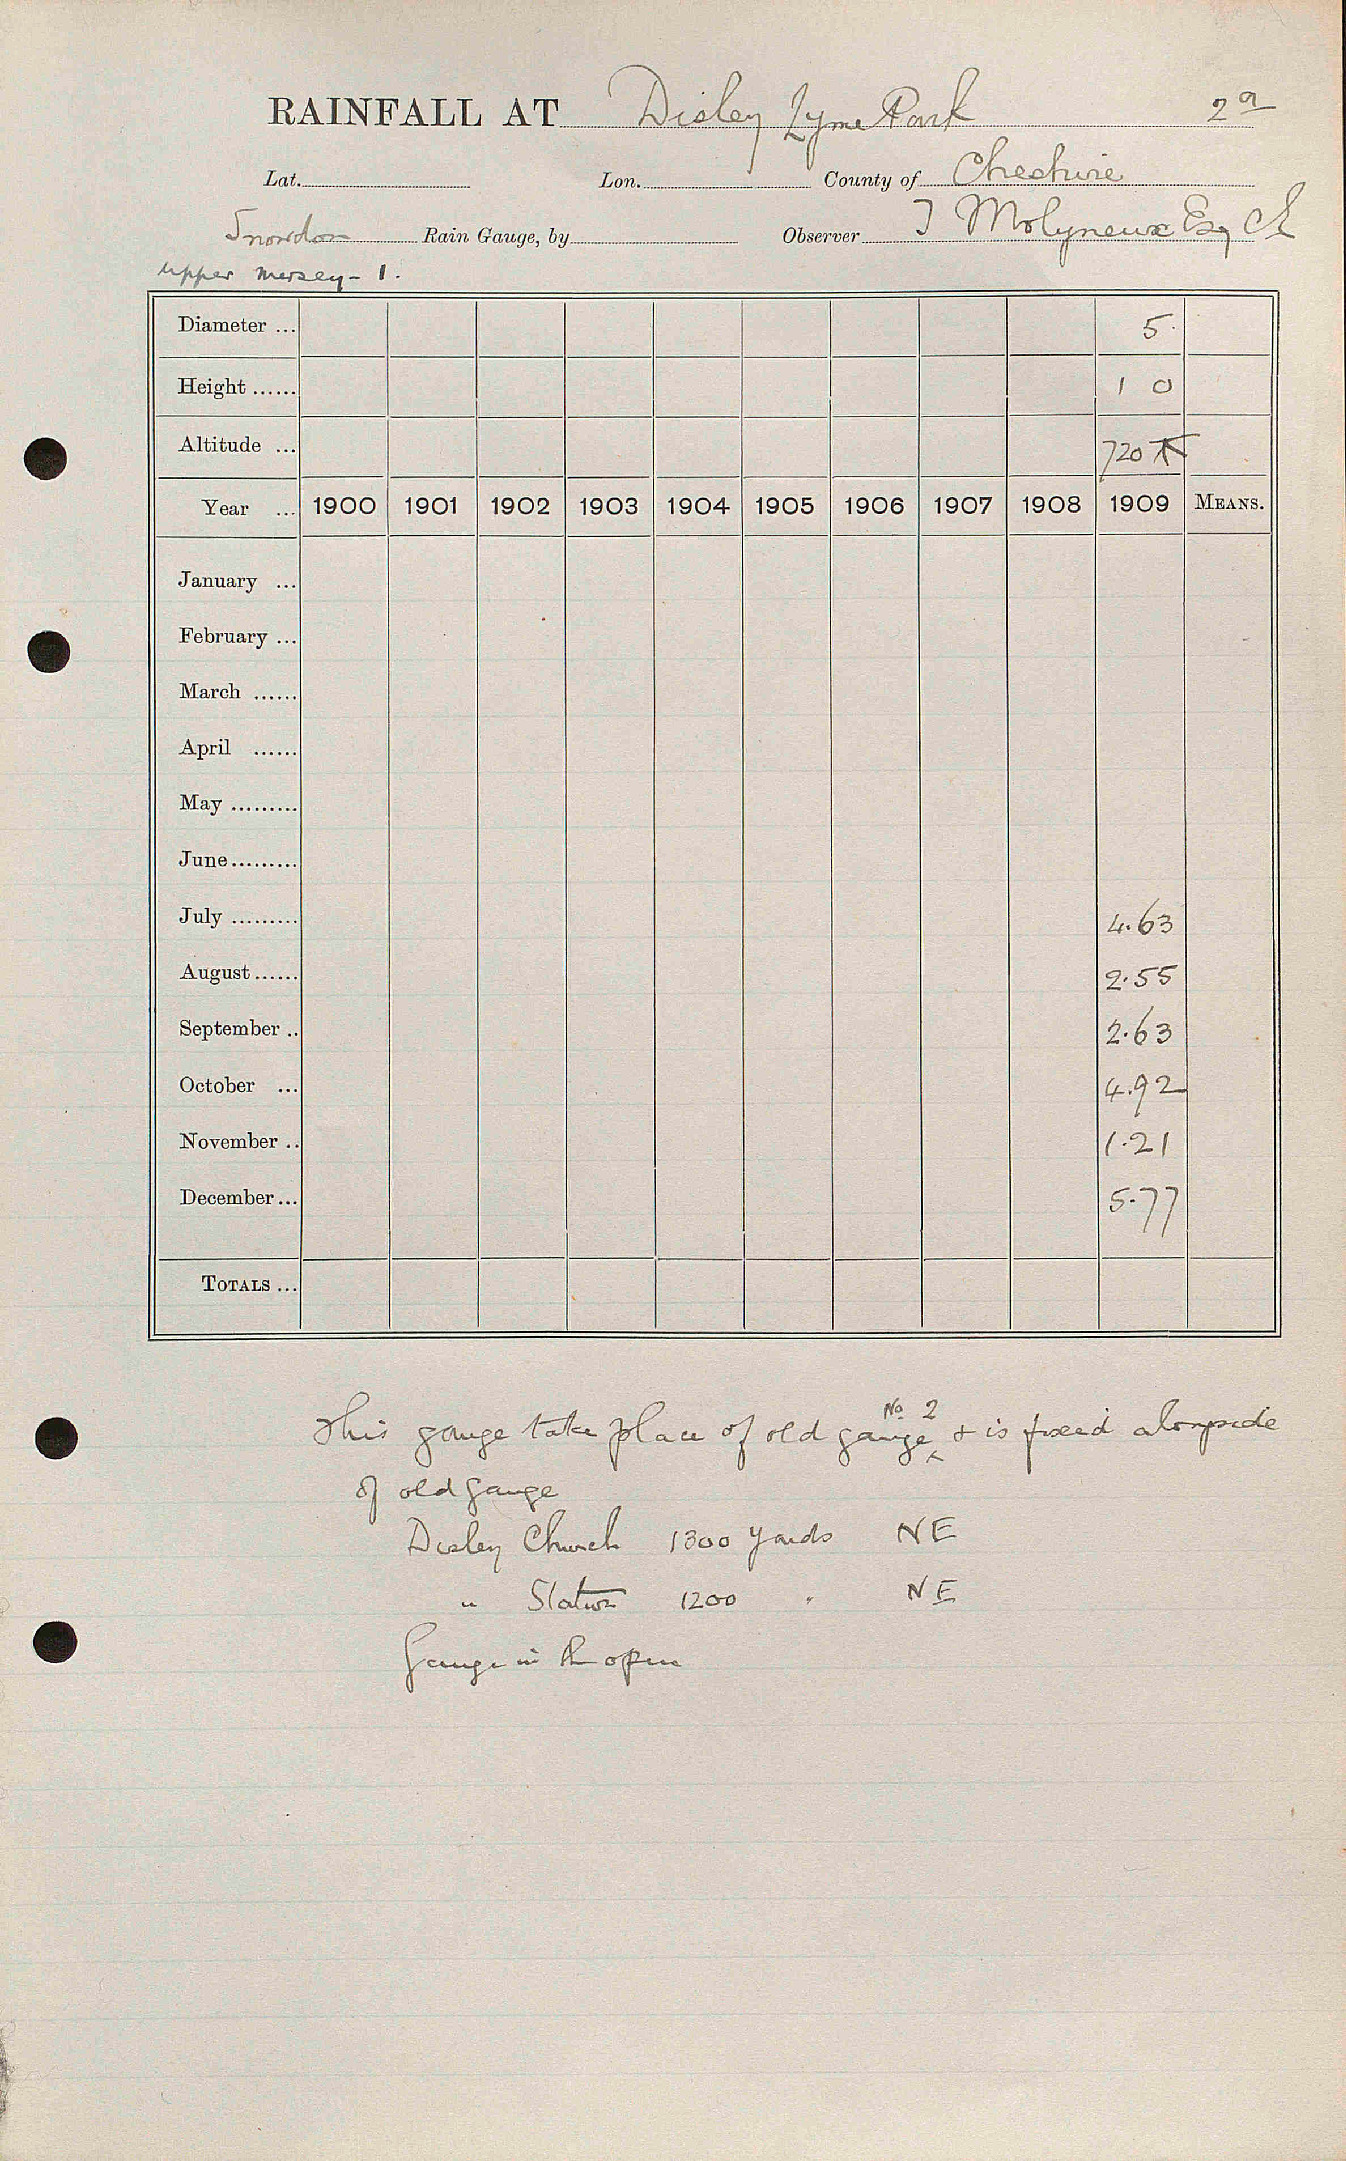 RAINFALL AT Disley Lyme Park 2a
Lat. Lon. County of Cheshire
Snowdon Rain Gauge, by Observer J Molyneux Esq CE
Upper Mersey - 1.
Diameter ... 5.
Height ...... 1 0
Altitude ... 720 T
Year ... 1900 1901 1902 1903 1904 1905 1906 1907 1908 1909 MEANS.
January ...
February ...
March ......
April ......
May .........
June.........
July ......... 4.63
August...... 2.55
September .. 2.63
October ... 4.92
November .. 1.21
December... 5.77
TOTALS ...
No. 2
This gauge take place of old gauge ^ & is fixed alongside
of old gauge
Disley Church 1300 yards NE
" Station 1200 " NE
Gauge in the open